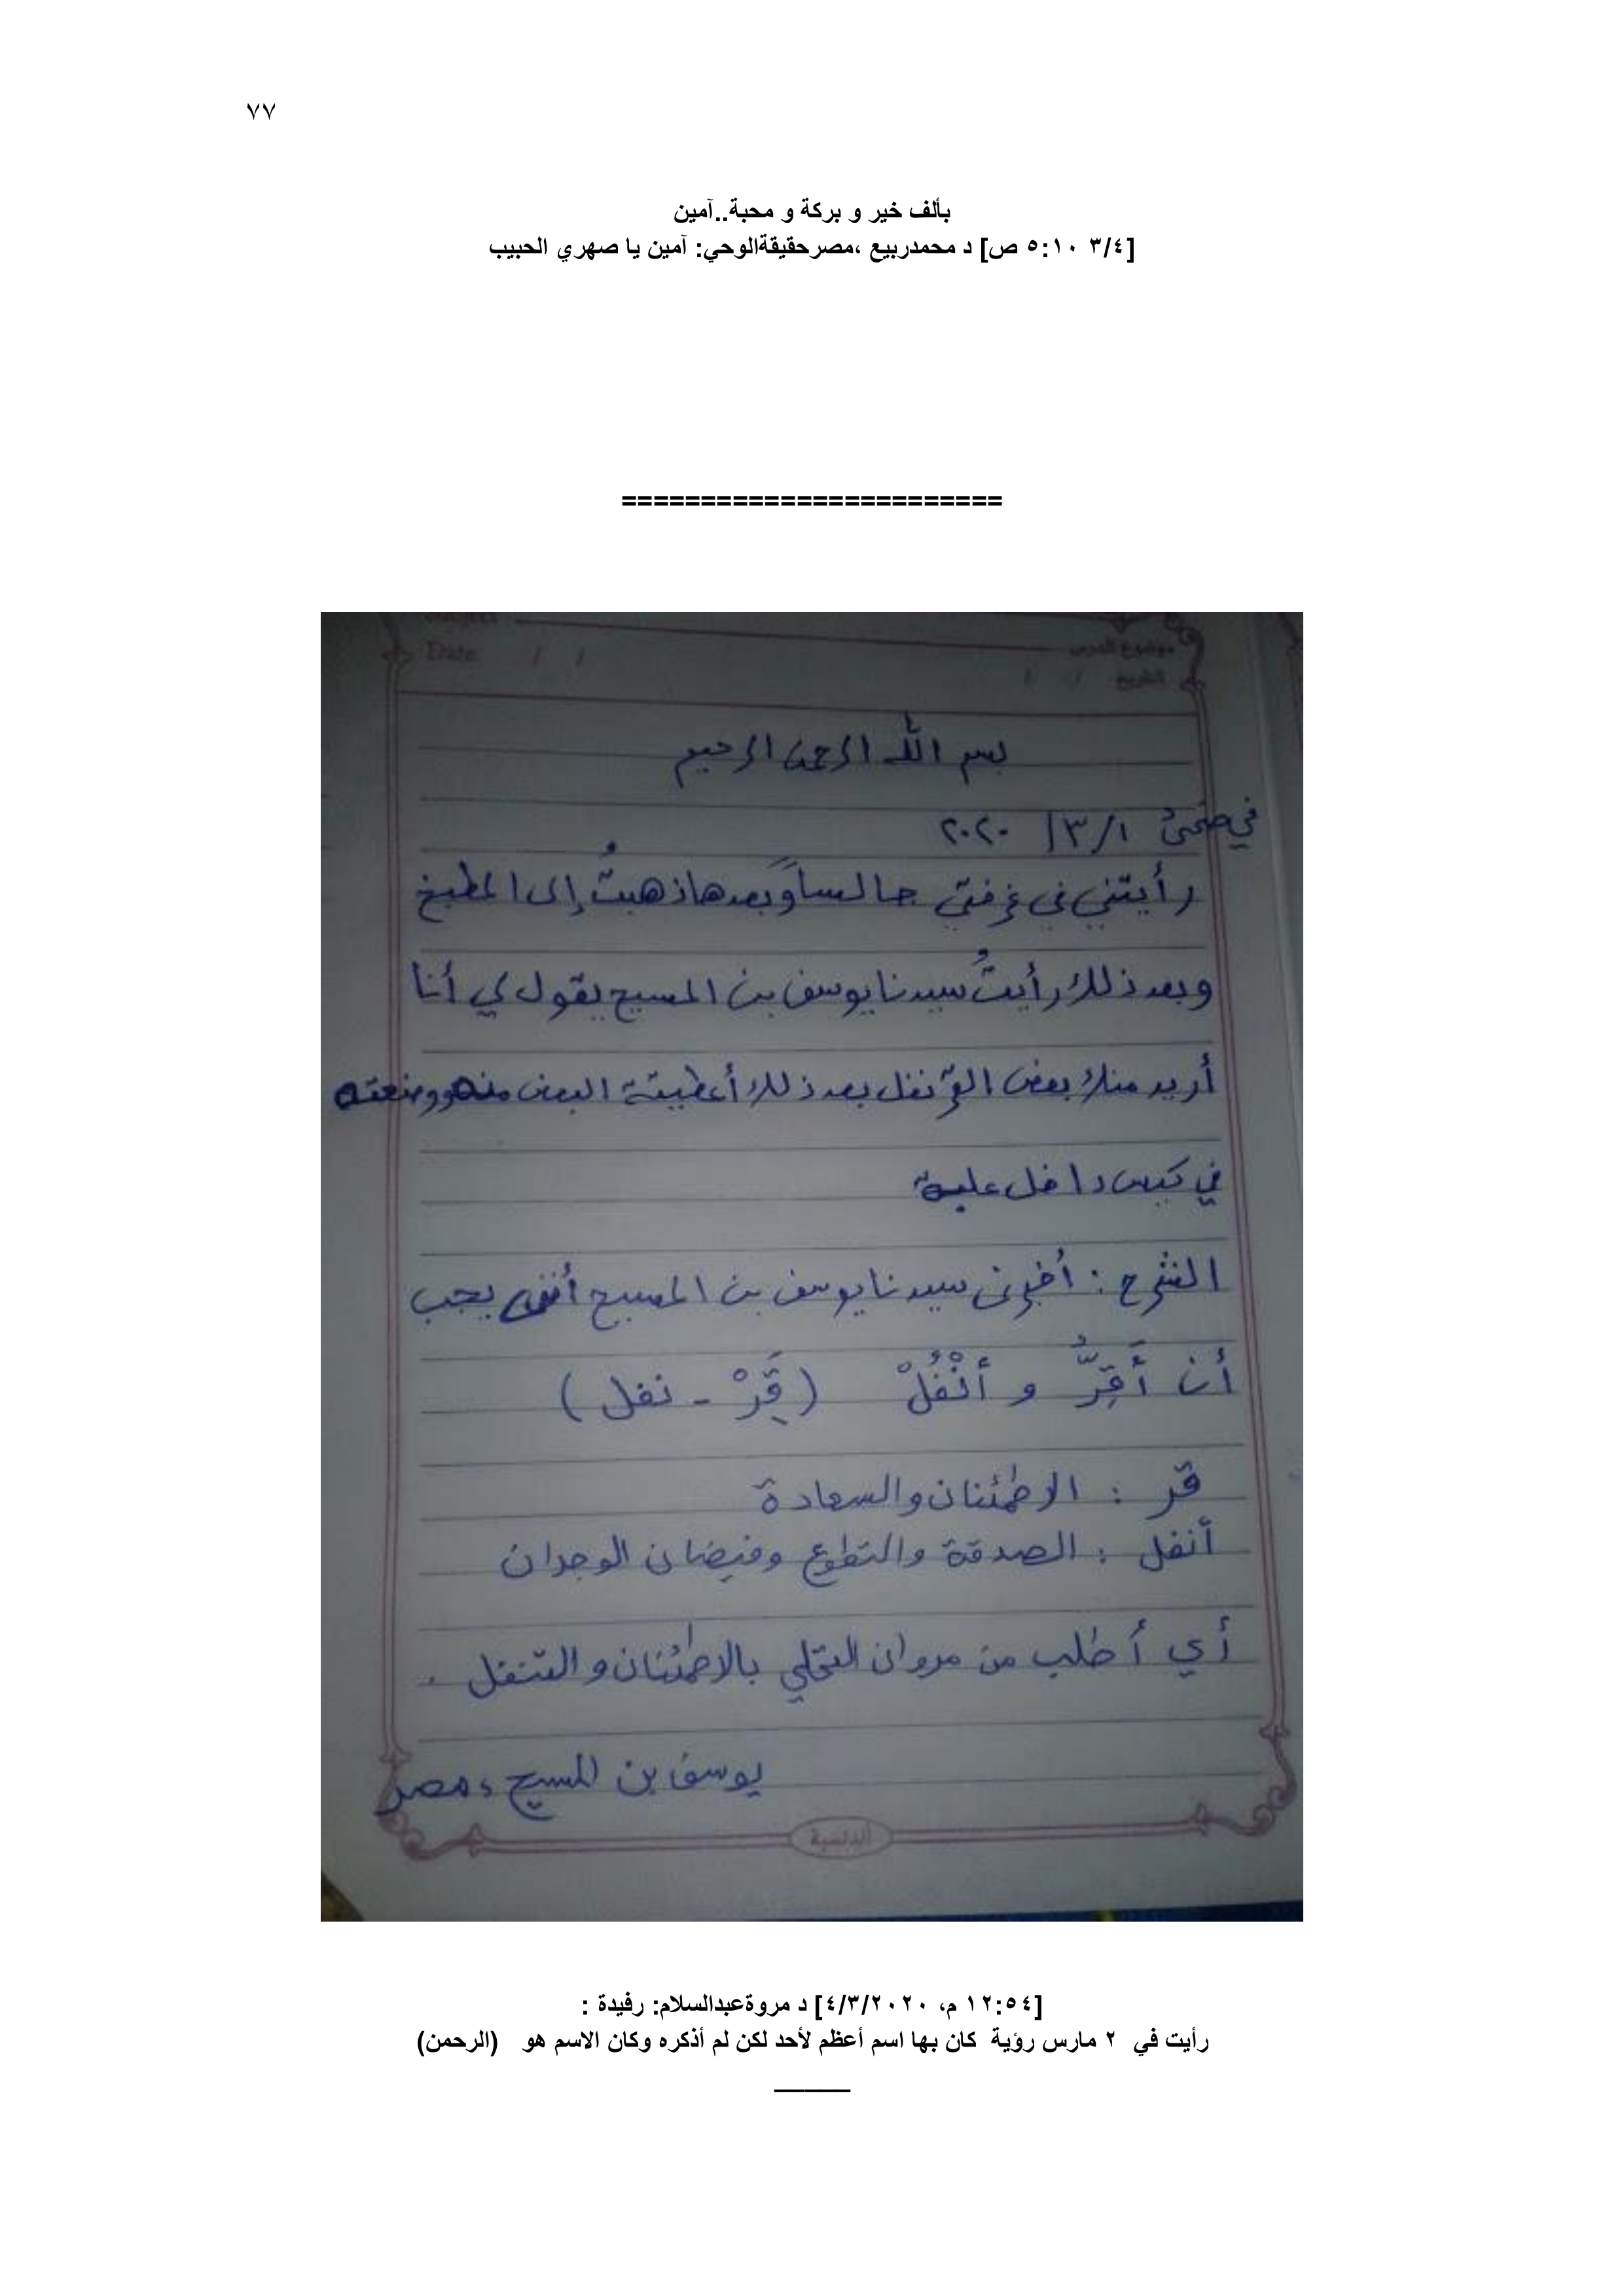 ٧٧
بألف خير و بركة و محبة..آمين
[٣/٤ ٥:١٠ ص] د محمدربيع ،مصرحقيقةالوحي: آمين يا صهري الحبيب
========================
Date / /
موضوع الدرس
التاريخ / /
بسم الله الرحمن الرحيم
في ضحى ١ /٣/ ٢٠٢٠
رأيتني في غرفتي جالساً وبعدها ذهبتُ إلى المطبخ
وبعد ذلك رأيتُ سيدنا يوسف بن المسيح يقول لي أنا
أريد منك بعض القرنفل بعد ذلك أعطيته البعض منه ووضعته
في كيس داخل علبة
الشرح : أخبرني سيدنا يوسف بن المسيح أنني يجب
أن أَقِرُّ و أنْفُلْ (قِرْ - نفل)
قر : الاطمئنان والسعادة
أنفل : الصدقة والتطوع وفيضان الوجدان
أي أطلب من مروان التحلي بالاطمئنان والتنفل .
يوسف بن المسيح ، مصر
[١٢:٥٤ م، ٤/٣/٢٠٢٠] د مروةعبدالسلام: رفيدة :
رأيت في ٢ مارس رؤية كان بها اسم أعظم لأحد لكن لم أذكره وكان الاسم هو (الرحمن)